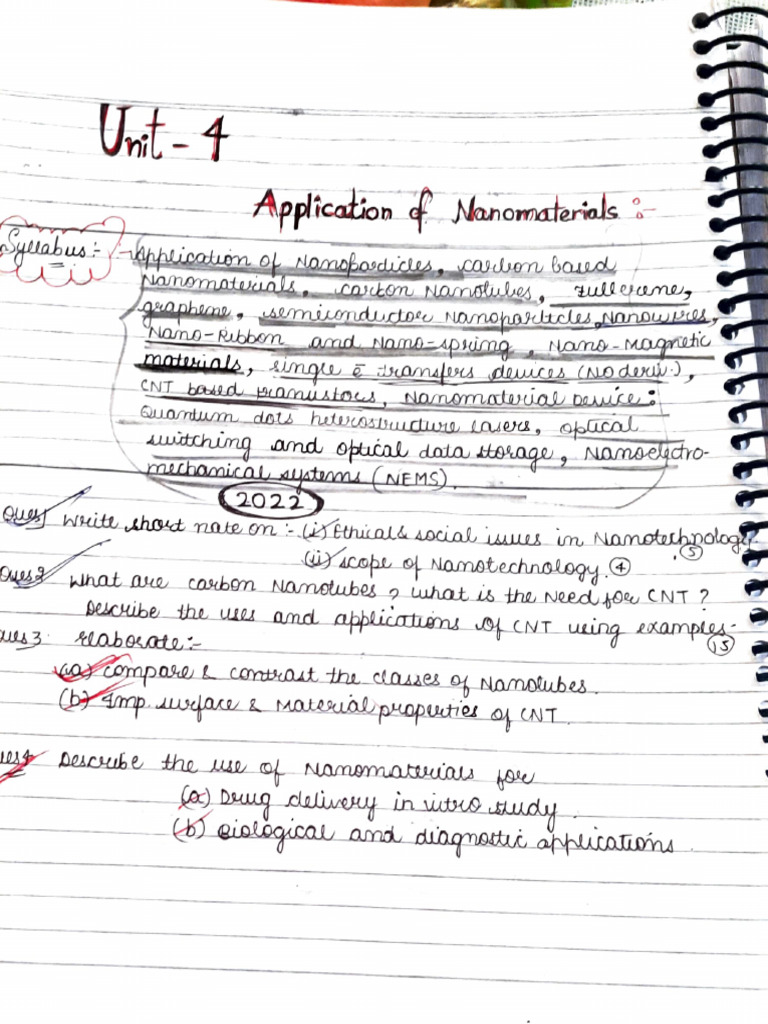 Unit - 4
Application of Nanomaterials :-
Syllabus :- Application of Nanoparticles, carbon based
Nanomaterials, carbon Nanotubes, fullerene,
graphene, semiconductor Nanoparticles, Nanowires,
Nano-Ribbon and Nano-spring, Nano-Magnetic
materials, single e transfers devices (No deriv.),
CNT based transistors, Nanomaterial Device :
Quantum dots heterostructure lasers, optical
switching and optical data storage, Nanoelectro-
mechanical systems (NEMS).
2022
Ques1 Write short note on :- (i) Ethical & social issues in Nanotechnology
. (5)
(ii) scope of Nanotechnology. (4)
Ques2 What are carbon Nanotubes ? what is the Need for CNT ?
Describe the uses and applications of CNT using examples.
(15)
Ques3 Elaborate :-
(a) compare & contrast the classes of Nanotubes.
(b) Imp. surface & Material properties of CNT.
Ques4 Describe the use of Nanomaterials for
(a) Drug delivery in vitro study.
(b) Biological and diagnostic applications.